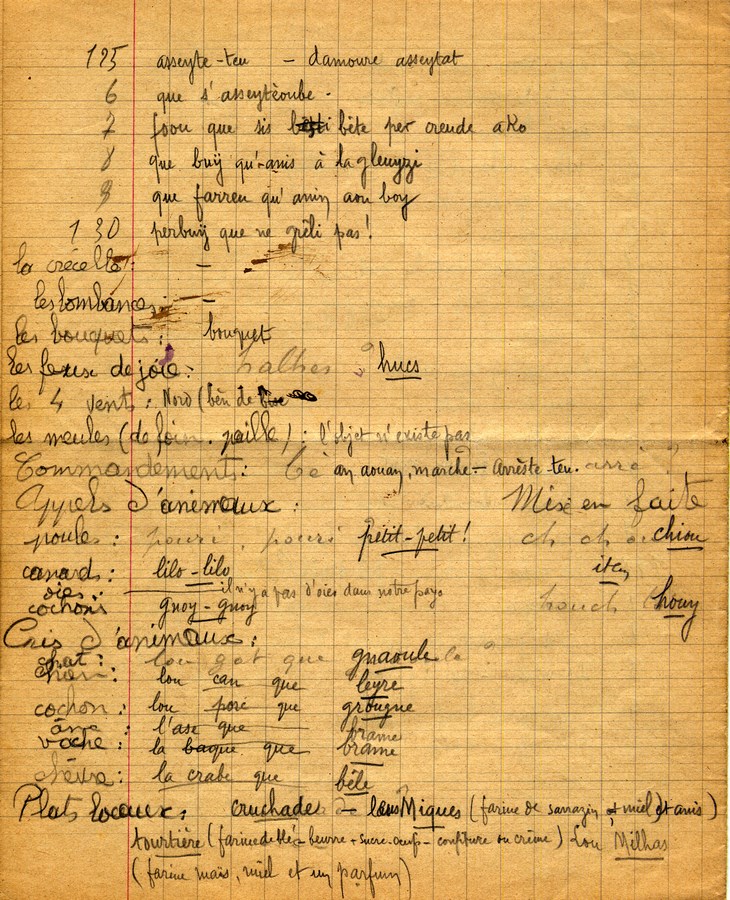 125 asseyte-teu - damoure asseytat
6 que s'asseytèoube.
7 foou que sis bête per creude ako
8 que buÿ qu'anis à la gleuyzi
9 que farreu qu'aniu aou boy
130 perbuÿ que ne grêli pas!
la crécelle: -
les : -
les bouquets: bouquet
les feux de joie: halhes ? hucs
les 4 vents: Nord (bèn de
les meules (de foin. paille): l'objet n'existe pas
Commandements: Cè an aouan, marche - Arrèste-teu. arrò ?
Appels d'animaux: Mise en fuite
poules: pouri, pouri ? petit-petit! ch ch chiou
canards: lilo-lilo
oies: il n'y a pas d'oies dans notre pays
cochons gnoy-gnoy houch houy
Cris d'animaux:
chat: lou gat que gnaoule ?
chien: lou can que leyre
cochon: lou porc que grougne
âne: l'ase que brame
vache: la baque que brame
chèvre: la crabe que bêle
Plats locaux: cruchade - lous Miques (farine de sarrazin + miel et anis)
tourtière (farine de blé - beurre + sucre - oeufs - confiture ou crème) Lou Milhas
(farine maïs, miel et un parfum)